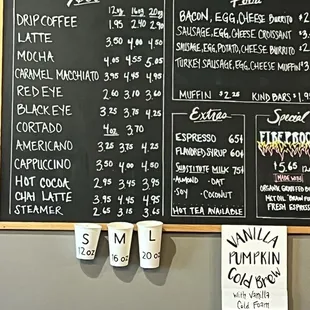 12oz 16oz 20oz
DRIP COFFEE 1.95 2.40 2.90
LATTE 3.50 4.00 4.50
MOCHA 4.05 4.55 5.05
CARAMEL MACCHIATO 3.95 4.45 4.95
RED EYE 2.60 3.10 3.60
BLACK EYE 3.25 3.75 4.25
CORTADO 4oz 3.70
AMERICANO 3.25 3.75 4.25
CAPPUCCINO 3.50 4.00 4.50
HOT COCOA 2.95 3.45 3.95
CHAI LATTE 3.95 4.45 4.95
STEAMER 2.65 3.15 3.65
Food
BACON, EGG, CHEESE BURRITO
SAUSAGE, EGG, CHEESE CROISSANT
SAUSAGE, EGG, POTATO, CHEESE BURRITO
TURKEY SAUSAGE, EGG, CHEESE MUFFIN
MUFFIN $2.25 KIND BARS
Extras
ESPRESSO 65¢
FLAVORED SYRUP 60¢
SUBSTITUTE MILK 75¢
·ALMOND ·OAT
·SOY ·COCONUT
HOT TEA AVAILABLE
Special
FIREPROO
$5.65
MADE WITH
ORGANIC GRASSFED
MCT OIL
FRESH ESPRESS
S
12oz
M
16 oz
L
20 oz
VANILLA
PUMPKIN
Cold Brew
with Vanilla
Cold Foam